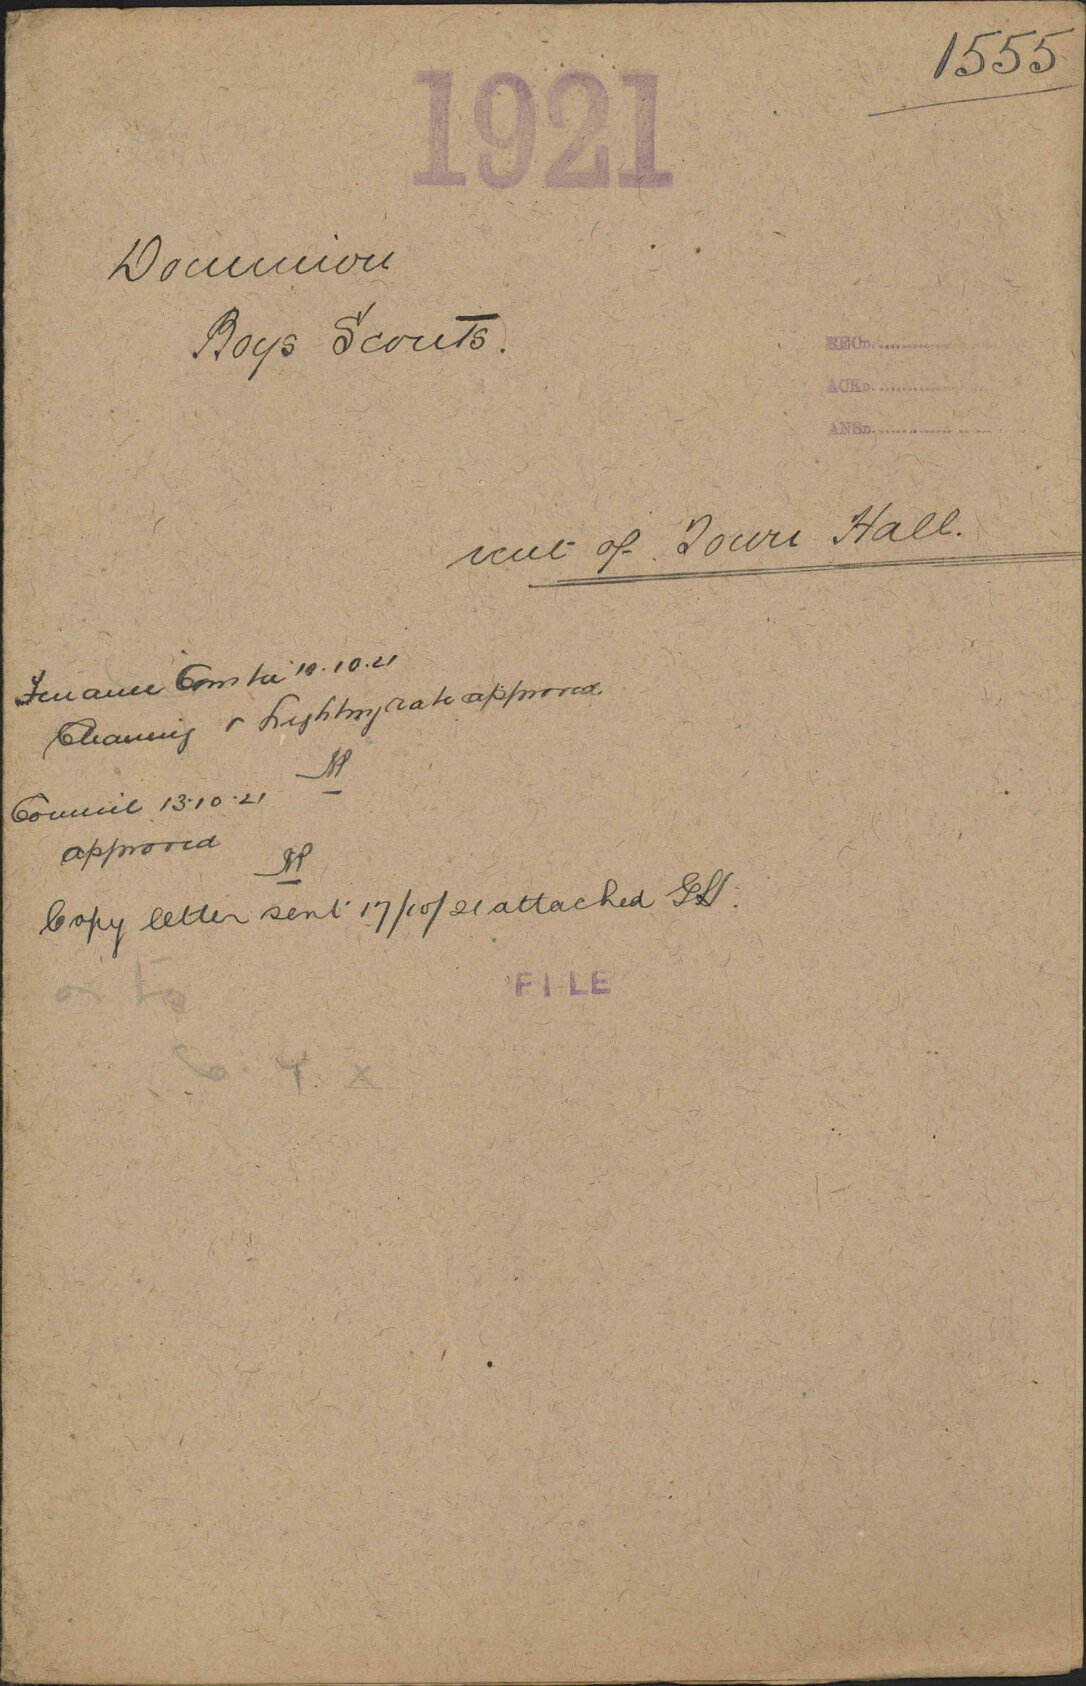 1555
1921
Dominion
Boys Scouts.
RECD.
ACKD.
ANSD.
rent of Town Hall.
Finance Comtee 10.10.21
Cleaning & lighting rate approved.
Council 13.10.21
approved
Copy letter sent 17/10/21 attached
FILE